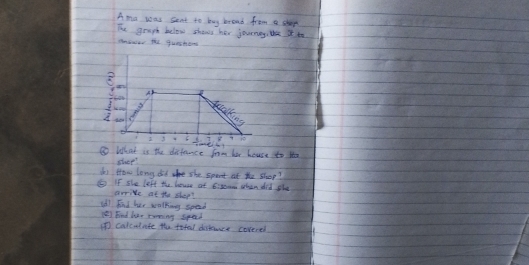 Ama was sent to buy bread from a shop
The graph below shows her journey. Use it to
answer the questions
Distance (M)
A
B
1 2 3 4 5 6 7 8 9 10
(a) What is the distance from her house to the
shop?
(b) How long did she spent at the shop?
(c) If she left the house at when did she
arrive at the shop?
(d) Find her walking speed
(e) Find her running speed
(f) Calculate the total distance covered